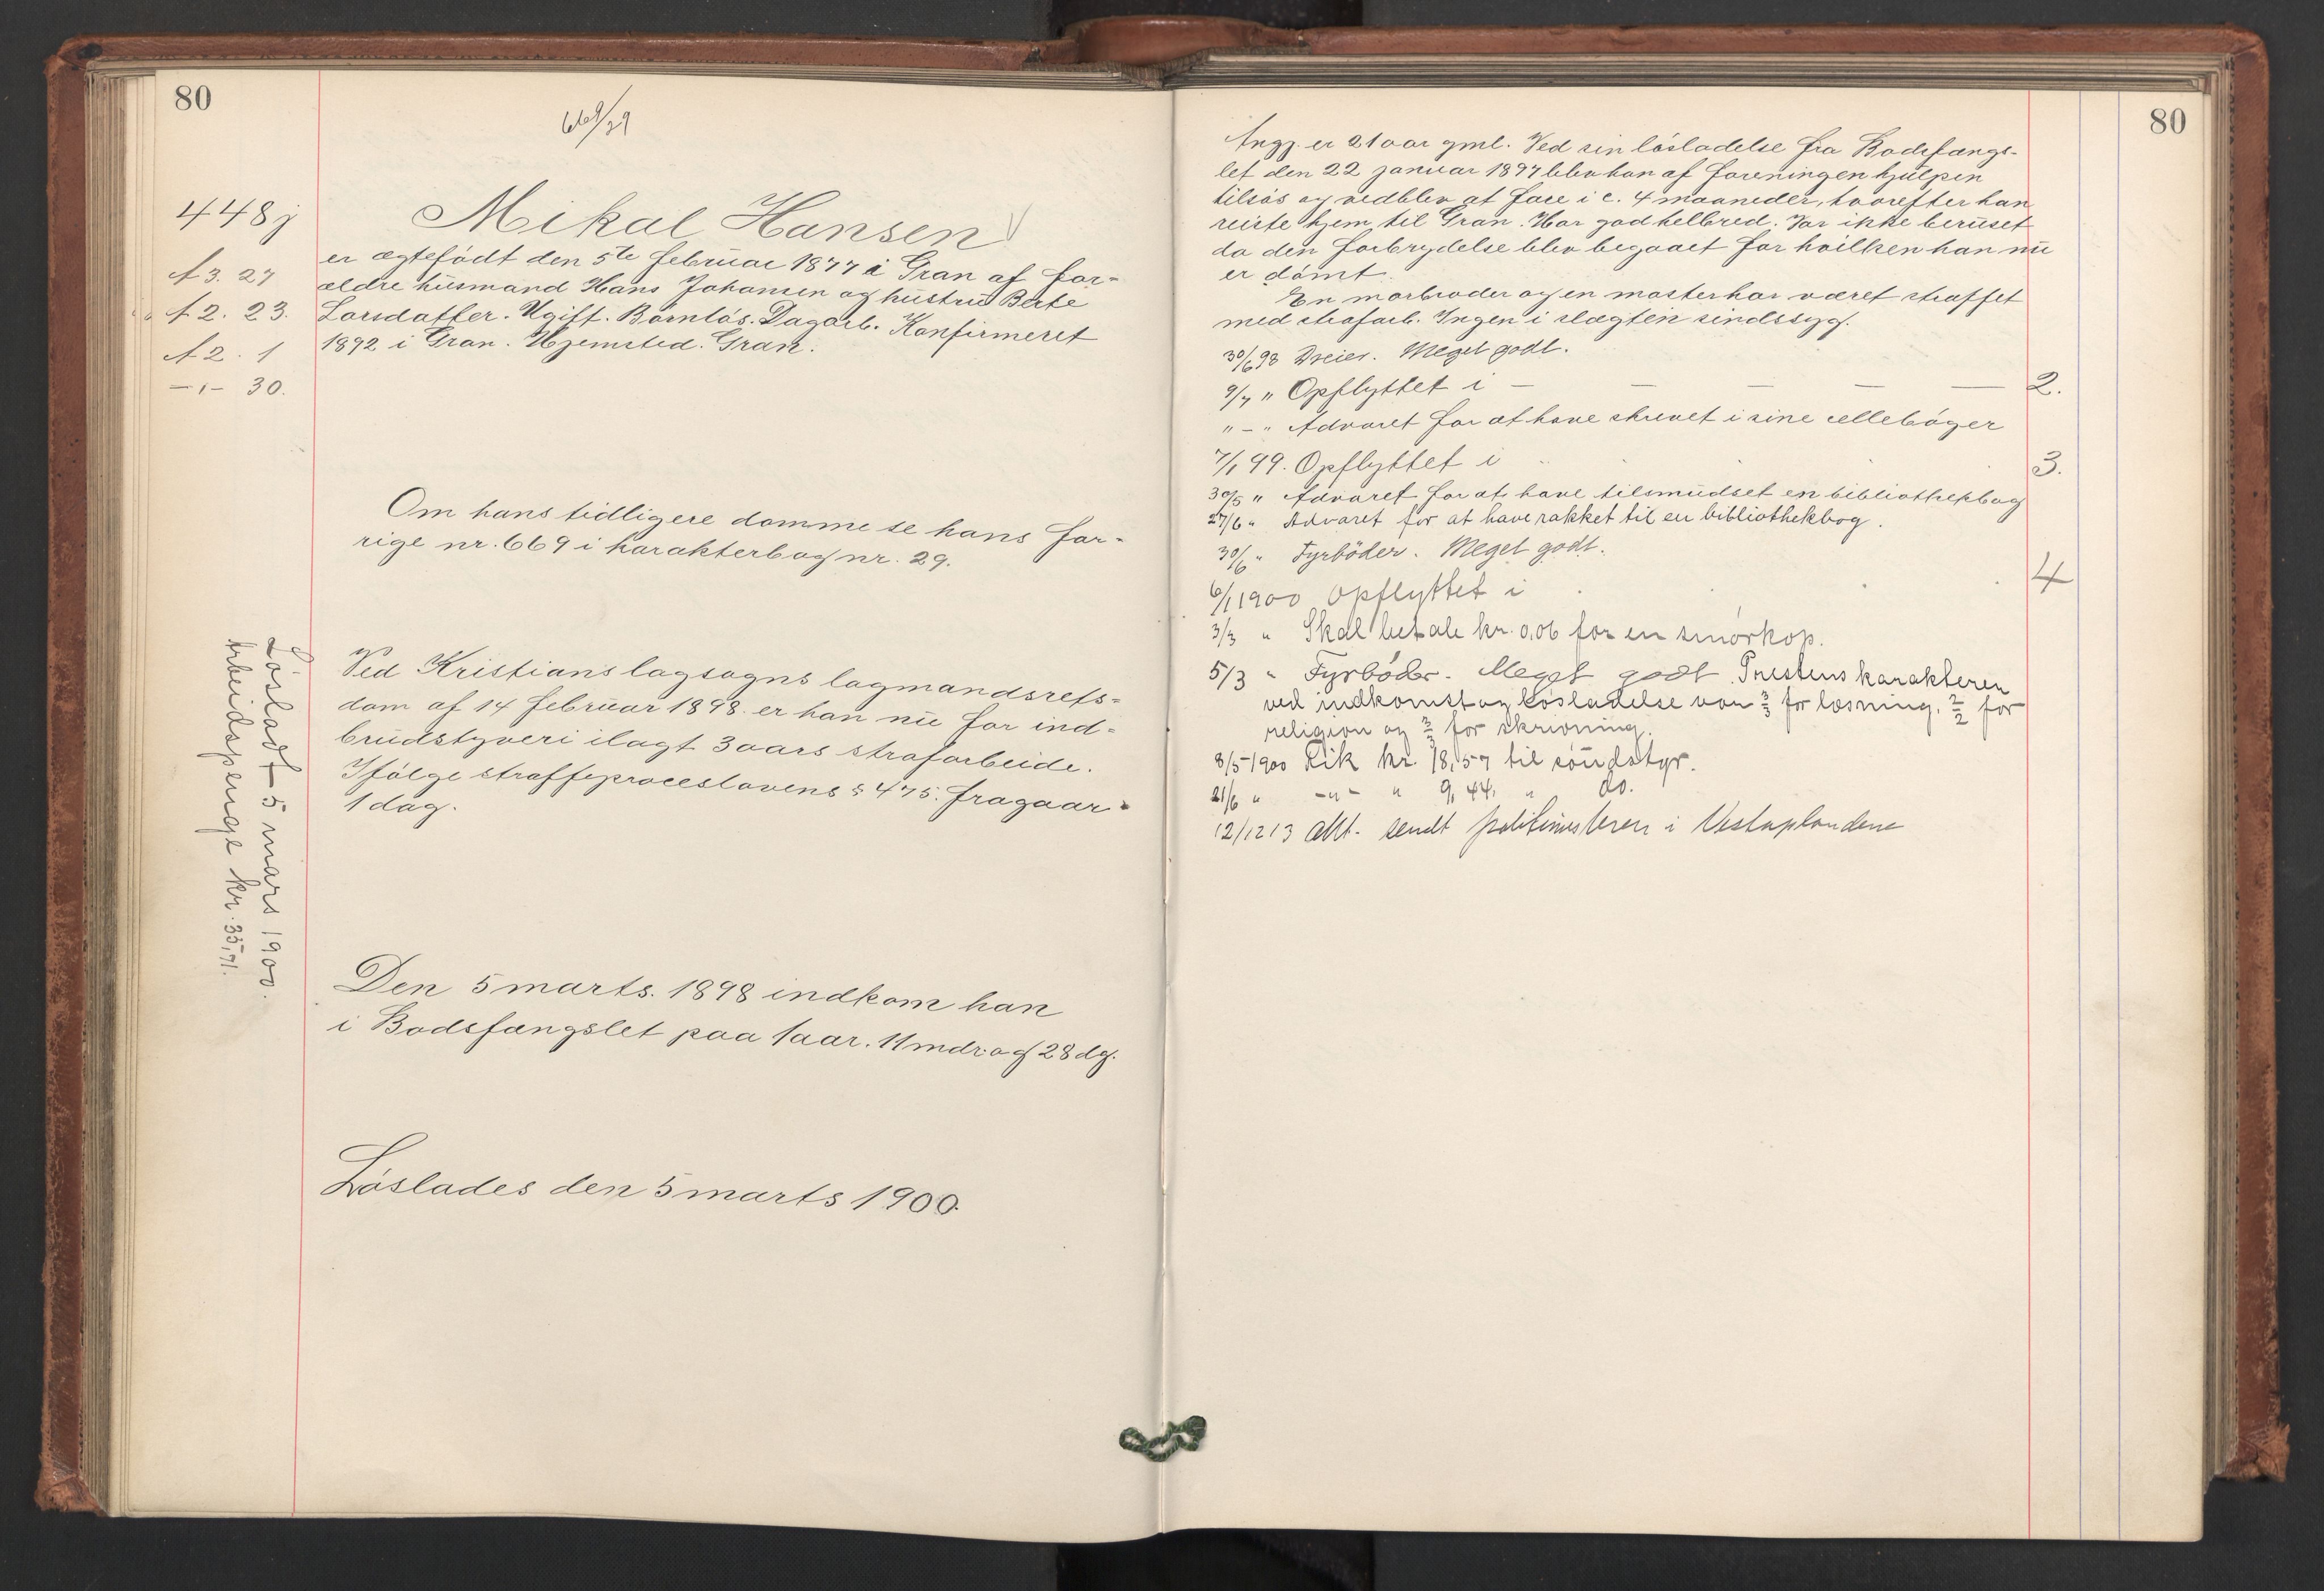 80
669/29
448j
A3.27
A2.23.
A2.1
-"- 30.
Mikal Hansen
er ægtefödt den 5te februar 1877 i Gran af for-
ældre husmand Hans Johansen og hustru Berte
Larsdatter. Ugift. Barnlös. Dagarb. Konfirmeret
1892 i Gran. Hjemsted. Gran.
Om hans tidligere domme se hans for-
rige nr. 669 i karakterbog nr. 29.
Ved Kristians lagsogns lagmandsrets-
dom af 14 februar 1898 er han nu for ind-
brudstyveri ilagt 3 aars strafarbeide.
Ifölge straffeproceslovens § 475. fragaar
1 dag.
Lösladt 5 mars 1900.
Arbeidspenge kr. 35,71.
Den 5 marts. 1898 indkom han
i Bodsfængslet paa 1 aar. 11 mdr. og 28 dg.
Löslades den 5 marts 1900.
80
Angj. er 21 aar gml. Ved sin lösladelse fra Bodsfængs-
let den 22 januar 1897 blev han af foreningen hjulpen
tilsös og vedblev at fare i c. 4 maaneder, hvorefter han
reiste hjem til Gran. Har god helbred. Var ikke beruset
da den forbrydelse blev begaaet for hvilken han nu
er dömt.
En morbroder og en moster har været straffet
med strafarb. Ingen i slægten sindssyg.
30/6 98 Dreier. Meget godt.
9/7 " Opflyttet i — — — — — 2.
" - " Advaret for at have skrevet i sine cellebøger
7/1 99. Opflyttet i 3.
30/5 " Advaret for at have tilsmudset en bibliothekbog
27/6 " Advaret for at have rakket til en bibliothekbog.
30/6 " Fyrböder. Meget godt.
6/1 1900 Opflyttet i 4
3/3 " Skal betale kr. 0,06 for en smörkop.
5/3 " Fyrböder. Meget godt. Prestens karakterer
ved indkomst og lösladelse var 3/3 for læsning, 2/2 for
religion og 3/3 for skrivning.
8/5 1900 Fik kr. 18,57 til söudstyr.
21/6 " -"- " 9,44. " do.
12/12 13 Akt. sendt politimesteren i Vestoplandene